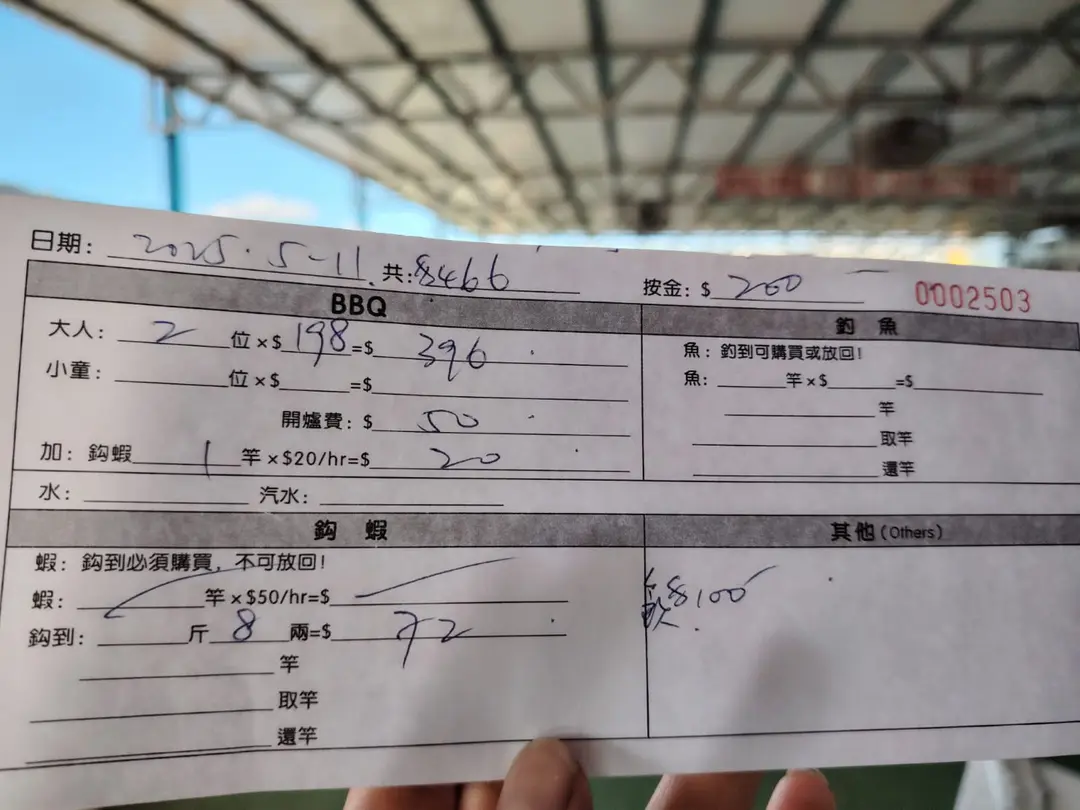 日期: 2025.5-11 共:$466 按金: $ 200 0002503
BBQ
大人: 2 位×$ 198 =$ 396
小童: 位×$ =$
開爐費: $ 50
加: 鈎蝦 1 竿×$20/hr=$ 20
水: 汽水:
釣 魚
魚: 釣到可購買或放回!
魚: 竿×$ =$
竿
取竿
還竿
鈎 蝦
蝦: 鈎到必須購買, 不可放回!
蝦: 竿×$50/hr=$
鈎到: 斤 8 兩=$ 72
竿
取竿
還竿
其他(Others)
$100